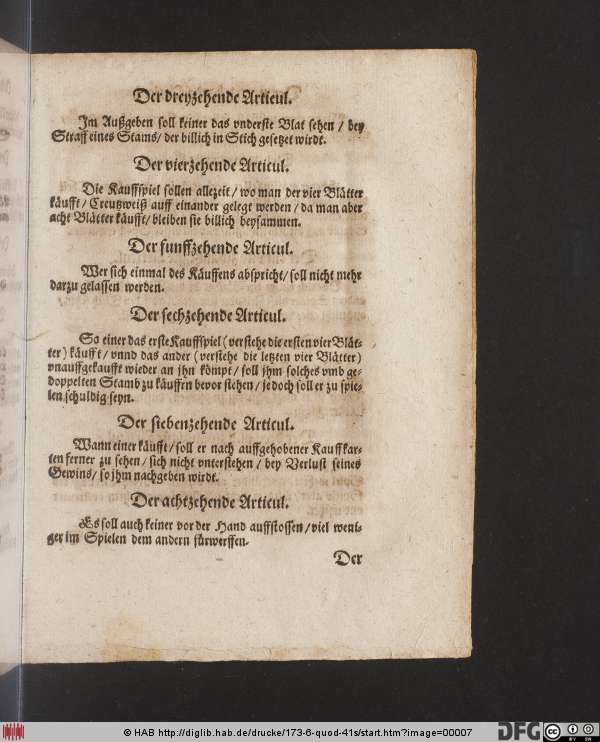 Der dreyzehende Articul.
Im Außgeben soll keiner das vnderste Blat sehen / bey
Straff eines Stams / der billich in Stich gesetzet wirdt.
Der vierzehende Articul.
Die Kauffspiel sollen allezeit / wo man der vier Blätter
käufft / Creutzweiß auff einander gelegt werden / da man aber
acht Blätter käufft / bleiben sie billich beysammen.
Der funffzehende Articul.
Wer sich einmal des Käuffens abspricht / soll nicht mehr
darzu gelassen werden.
Der sechzehende Articul.
So einer das erste Kauffspiel (verstehe die ersten vier Blät-
ter) käufft / vnnd das ander (verstehe die letzten vier Blätter)
vnauffgekaufft wieder an jhn kömpt / soll jhm solches vmb ge-
doppelten Stamb zu käuffen bevor stehen / jedoch soll er zu spie-
len schuldig seyn.
Der siebenzehende Articul.
Wann einer käufft / soll er nach auffgehobener Kauffkar-
ten ferner zu sehen / sich nicht vnterstehen / bey Verlust seines
Gewins / so jhm nachgeben wirdt.
Der achtzehende Articul.
Es soll auch keiner vor der Hand auffstossen / viel weni-
ger im Spielen dem andern fürwerffen.
Der
© HAB http://diglib.hab.de/drucke/173-6-quod-41s/start.htm?image=00007
DFG
cc BY SA